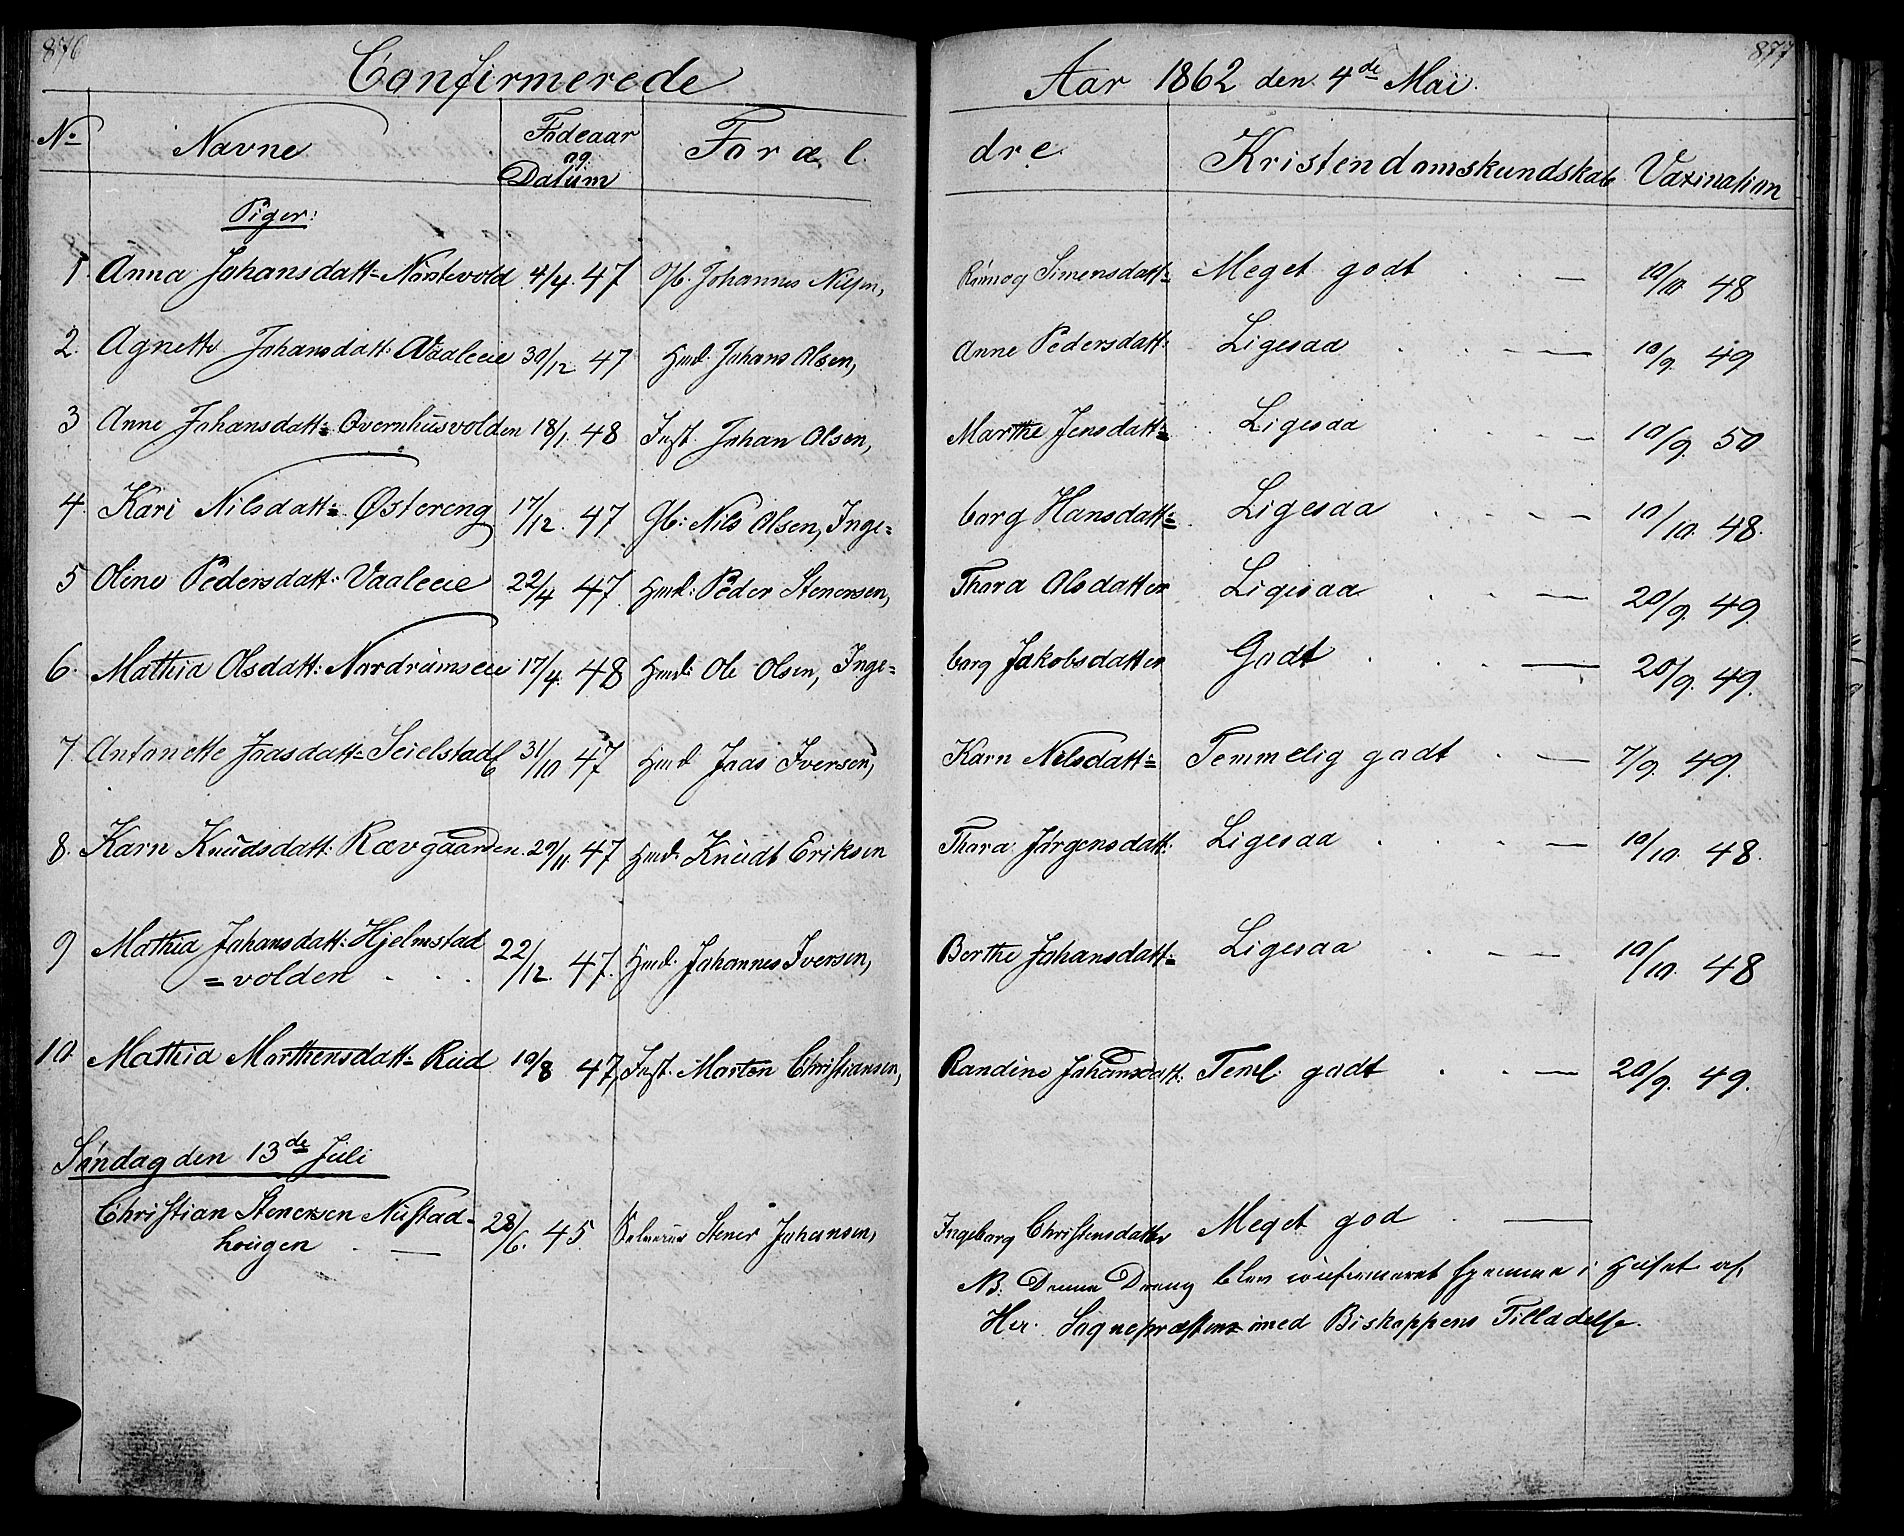 876 877
Confirmerede Aar 1862 den 4de Mai.
No Navne Fødeaar og Datum Foræl dre Kristendomskundskab Vaxination
Piger:
1. Anna Johansdatt= 4/4. 47 Gb. Johannes Nilsen, Simensdatt= Meget godt 10/10. 48
2. Agnette Johansdatt: Vaaleeie 30/12. 47 Hmd: Johans Olsen, Anne Pedersdatt: Ligesaa 10/9. 49
3 Anne Johansdatt= Qvernhusvolden 18/1. 48 Inst. Johan Olsen, Marthe Jensdatt= Ligesaa 10/9. 50
4. Kari Nilsdatt= Østereng 17/12. 47 Gb: Nils Olsen, Inge= borg Hansdatt= Ligesaa 10/10. 48.
5 Oline Pedersdatt: Vaaleeie 22/4 47. Hmd: Peder Stenersen, Thora Olsdatter Ligesaa 20/9. 49
6. Mathia Olsdatt: Nordrumseie 17/4. 48 Hmd: Ole Olsen, Inge= borg Jakobsdatter Godt 20/9. 49.
7. Antonette Joasdatt= Seielstad 31/10 47 Hmd Joas Iversen, Karn Nilsdatt= Temmelig godt 7/9. 49.
8. Karn Knudsdatt: Rævgaarden. 29/11. 47 Hmd: Knudt Eriksen Thora Jørgensdatt: Ligesaa 10/10. 48.
9 Mathia Johansdatt: Hjelmstad 22/12. 47. Hmd. Johannes Iversen, Berthe Johansdatt= Ligesaa 10/10. 48
=volden
10. Mathia Marthensdatt= Rud 19/8 47, Inst. Morten Christiansen, Randine Johansdatt: Teml. godt 20/9. 49.
Søndag den 13de Juli
Christian Stenersen Nustad- 28/6. 45 Selveier Stener Johansen, Ingeborg Christensdatter Meget god
hougen
NB. Denne Dreng blev confirmeret hjemme i Huset af
Hr. Sognepræsten med Biskoppens Tilladelse.